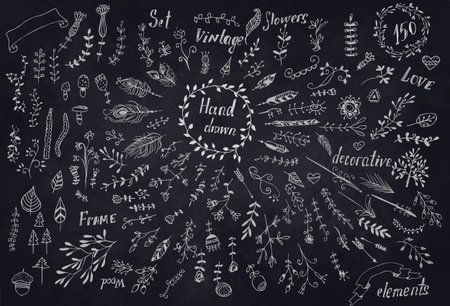 Set
Vintage
flowers
150
Love
Hand
drawn
decorative
Frame
Wood
elements